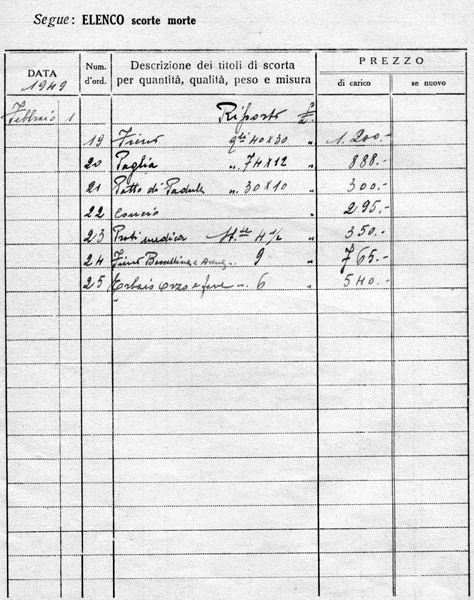 Segue: ELENCO scorte morte
DATA
1949
Num. d'ord.
Descrizione dei titoli di scorta per quantità, qualità, peso e misura
PREZZO
di carico
se nuovo
Febbraio 1 Riporto £
19 Fieno qli 40 x 30 " 1.200.-
20 Paglia " 74 x 12 " 888.-
21 Patto di Padule " 30 x 10 " 300.-
22 Concio " 295.-
23 Prati medica 4 1/2 " 350.-
24 Fieno e " 9 " 765.-
25 Erbaio orzo e fave " 6 " 540.-